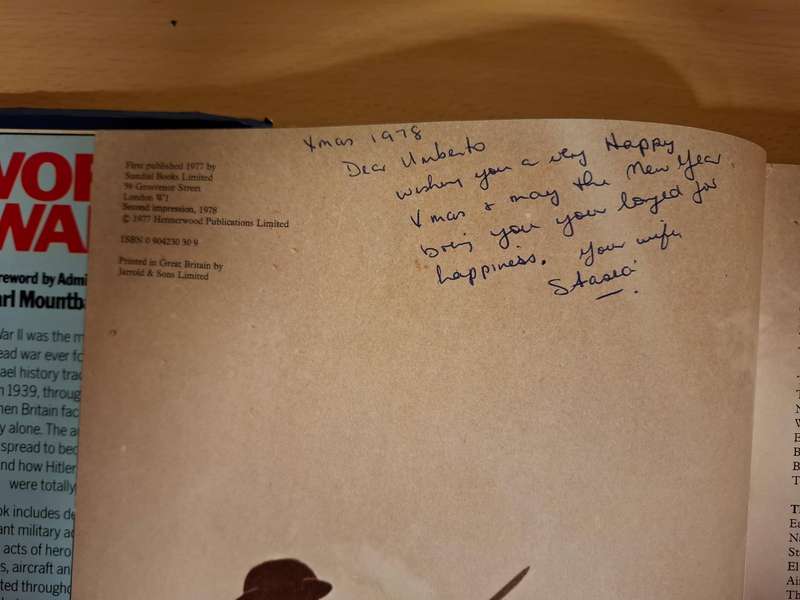 WOR
WA
reword by Admi
arl Mountba
War II was the m
ead war ever fo
ael history trac
n 1939, throug
hen Britain fac
y alone. The a
spread to bec
nd how Hitler
were totally
ok includes de
ant military ac
acts of hero
s, aircraft an
ted througho
First published 1977 by
Sundial Books Limited
59 Grosvenor Street
London W1
Second impression, 1978
© 1977 Hennerwood Publications Limited
ISBN 0 904230 30 9
Printed in Great Britain by
Jarrold & Sons Limited
Xmas 1978
Dear Umberto
wishing you a very Happy
Xmas & may the New Year
bring you your longed for
happiness. Your wife
T
N
W
E
B
B
T
T
Ea
Na
St
El
Air
Th